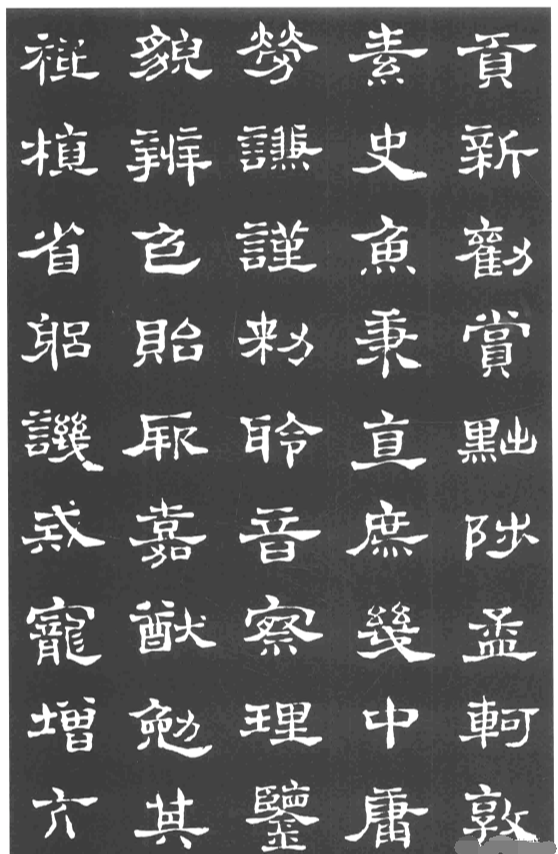 貢新勸賞黜陟孟軻敦
素史魚秉直庶幾中庸
勞謙謹勑聆音察理鑒
貌辨色貽厥嘉猷勉其
祗植省躳譏誡寵增亢